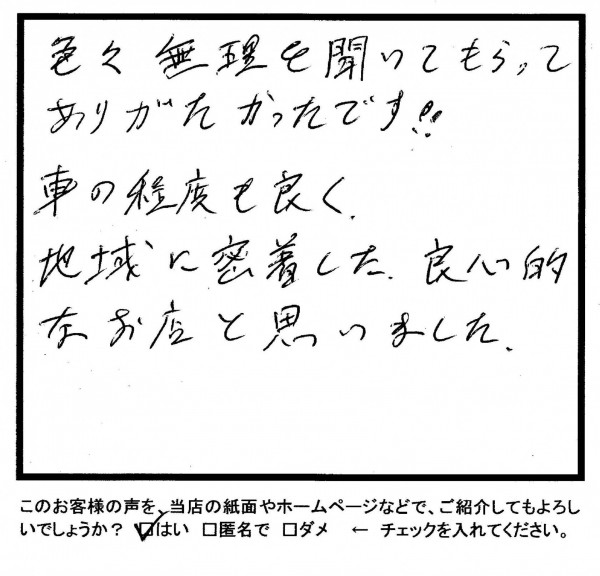 色々無理を聞いてもらって
ありがたかったです!!
車の程度も良く、
地域に密着した、良心的
なお店と思いました。
このお客様の声を、当店の紙面やホームページなどで、ご紹介してもよろし
いでしょうか? ☑はい □匿名で □ダメ ← チェックを入れてください。